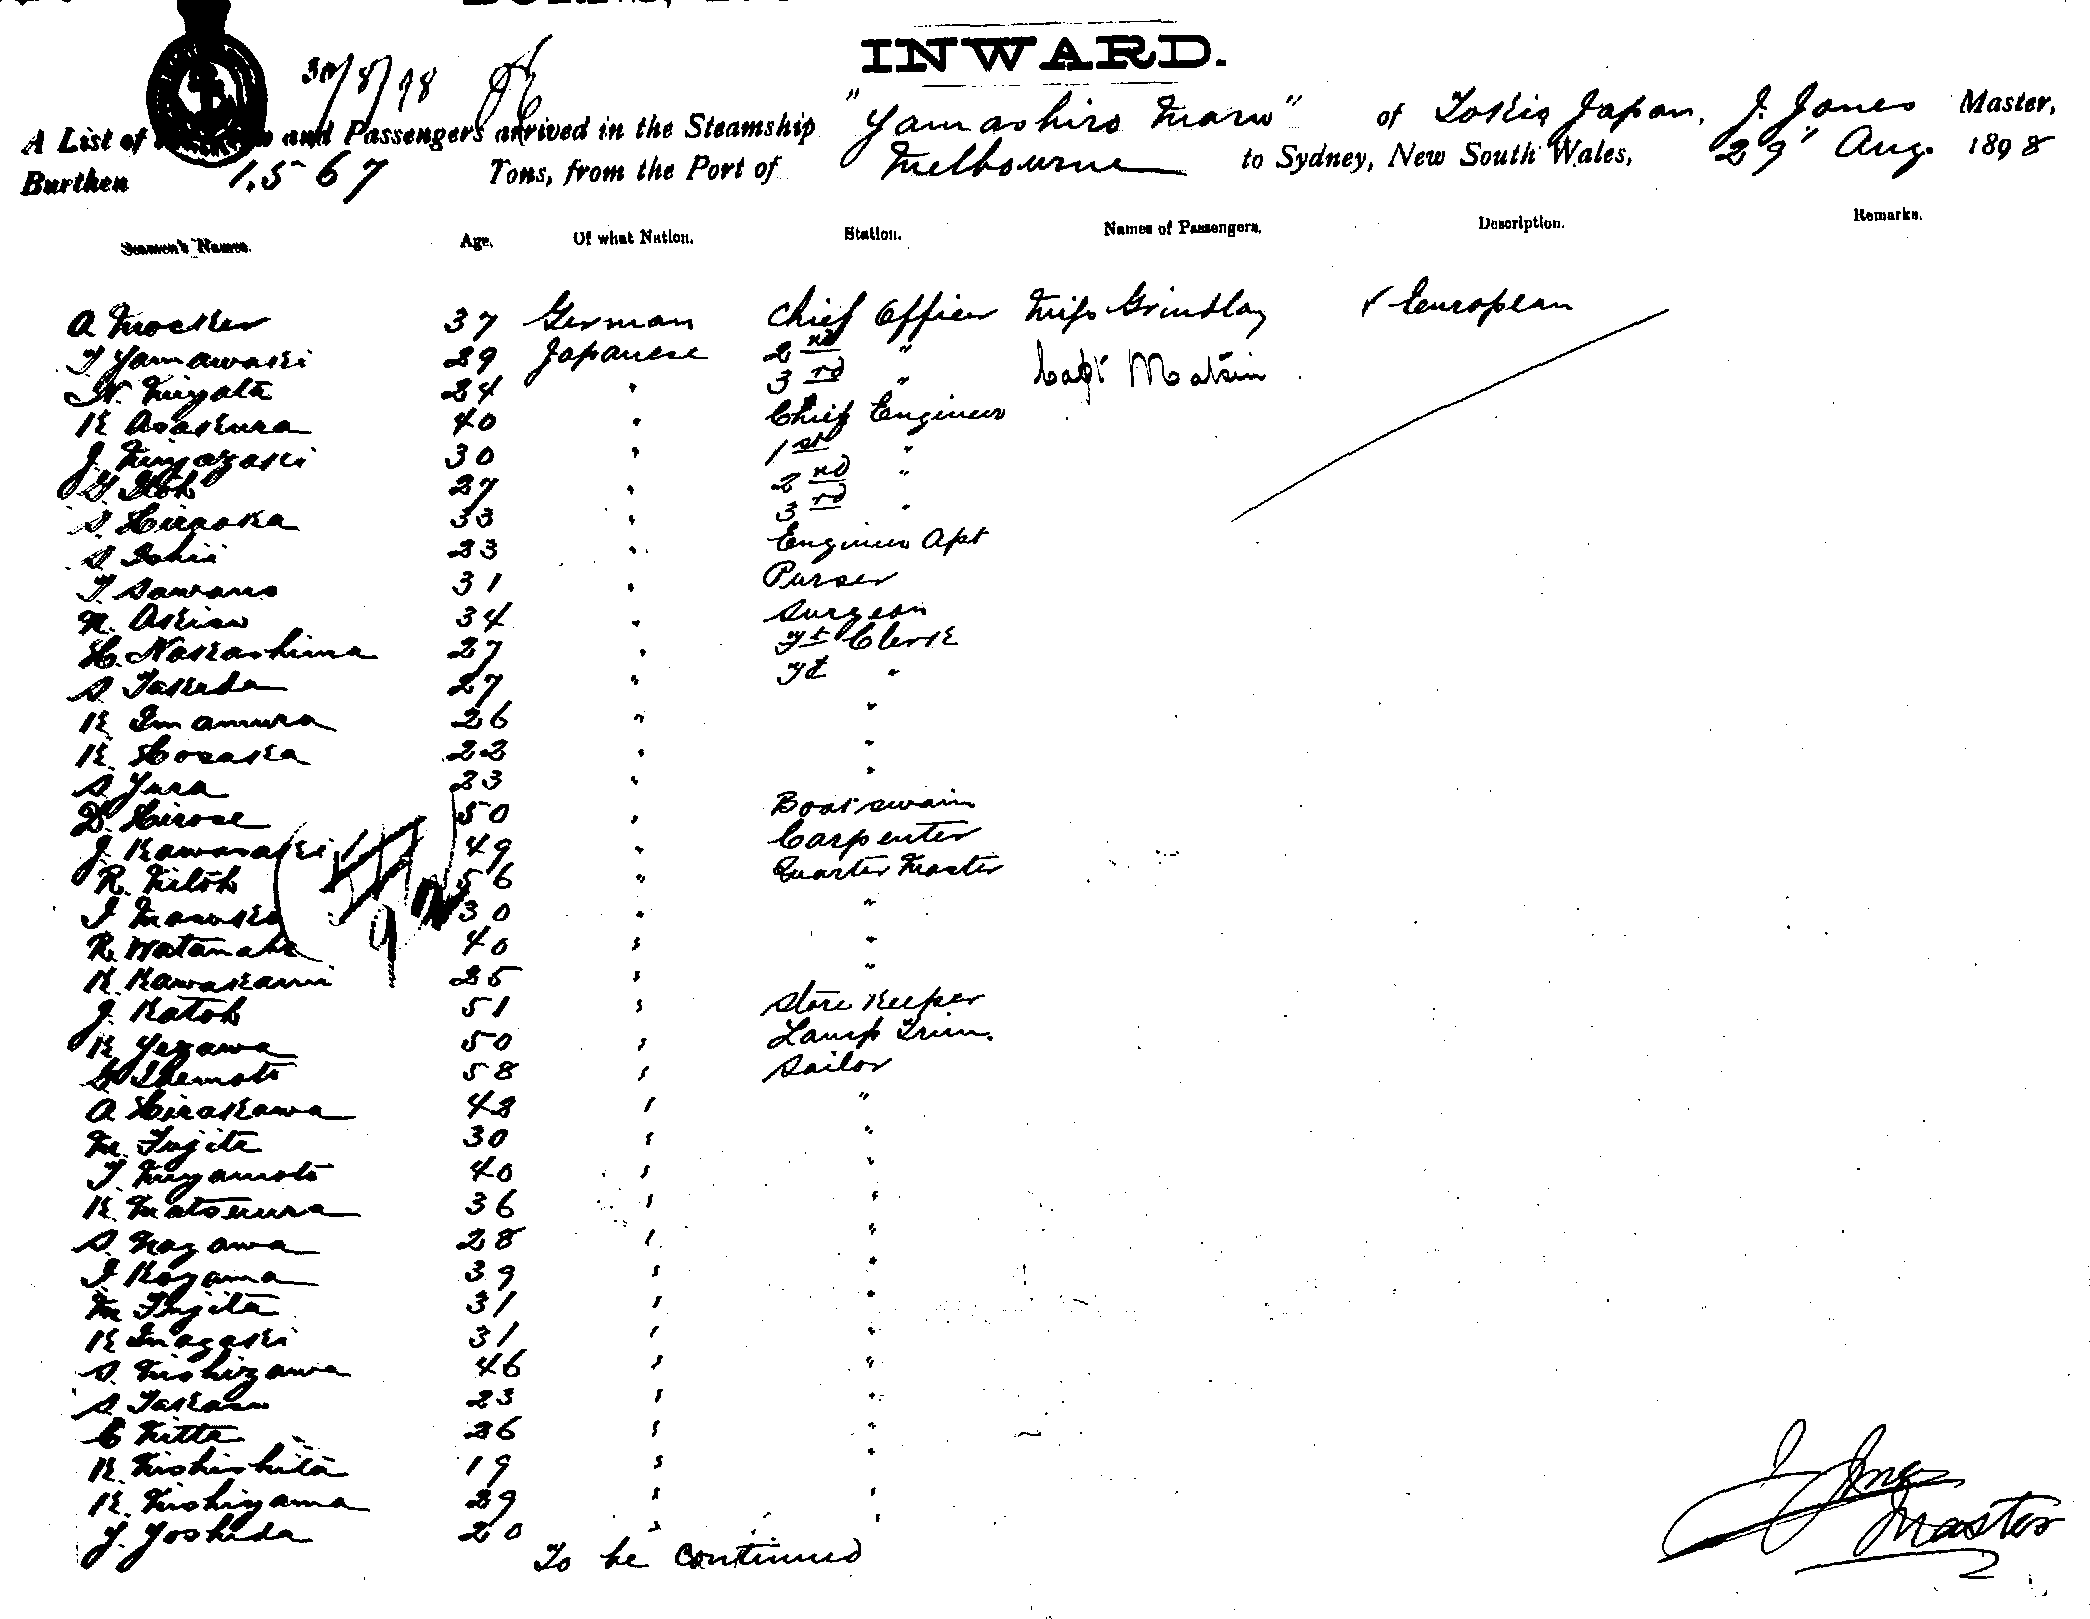 INWARD.
30/8/98
A List of and Passengers arrived in the Steamship "Yamashiro Maru" of Tokio Japan, J. Jones Master,
Burthen 1,567 Tons, from the Port of Melbourne to Sydney, New South Wales, 29" Aug. 1898
Seamen's Names. Age. Of what Nation. Station. Names of Passengers. Description. Remarks.
A Mocker 37 German Chief Officer Miss Grindlay ✓ European
T Yamawaki 29 Japanese 2nd " Capt Matsui
N. Miyata 24 " 3rd "
K Asakura 40 " Chief Engineer
J. Miyazaki 30 " 1st "
G Itoh 27 " 2nd "
S. Hiraoka 33 " 3rd "
S Ishii 23 " Engineer Apt
T Sawano 31 " Purser
N. Akino 34 " Surgeon
H. Nakashima 27 " Ft Clerk
S. Takeda 27 " Ft "
K Imamura 26 " "
K. Hosaka 22 " "
S Yura 23 " "
D. Hirose 50 " Boatswain
J. Kawasaki 49 " Carpenter
R. Nitoh 56 " Quarter Master
I 30 " "
R. Watanabe 40 " "
K. Kawakami 25 " "
J. Katoh 51 " Store Keeper
K Yezawa 50 " Lamp Trim.
G Ikemoto 58 " Sailor
A Hirakawa 43 " "
M. Fujita 30 " "
T. Miyamoto 40 " "
K. Matsuura 36 " "
S. Nagawa 28 " "
I Koyama 39 " "
M Fujita 31 " "
K Inagaki 31 " "
S. Nishizawa 46 " "
S Takano 23 " "
C Nitta 26 " "
K. Nishishita 19 " "
K. Nishiyama 29 " "
Y. Yoshida 20 " "
To be continued
J Jones
Master